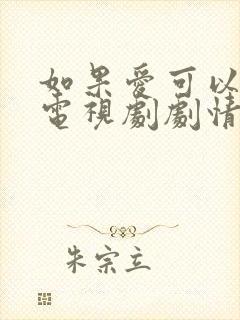 如果愛可以
電視劇劇情
朱宗立